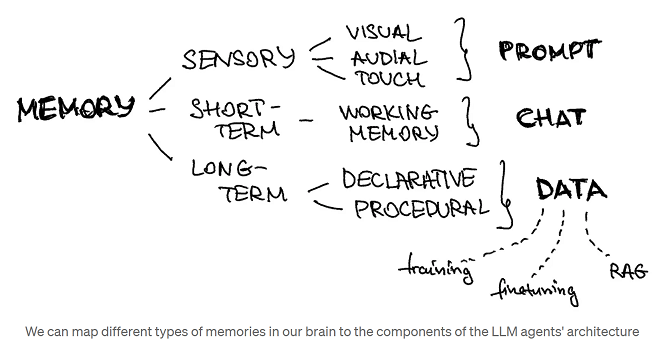 MEMORY
SENSORY
VISUAL
AUDIAL
TOUCH
PROMPT
SHORT-
TERM
WORKING
MEMORY
CHAT
LONG-
TERM
DECLARATIVE
PROCEDURAL
DATA
training
finetuning
RAG
We can map different types of memories in our brain to the components of the LLM agents' architecture